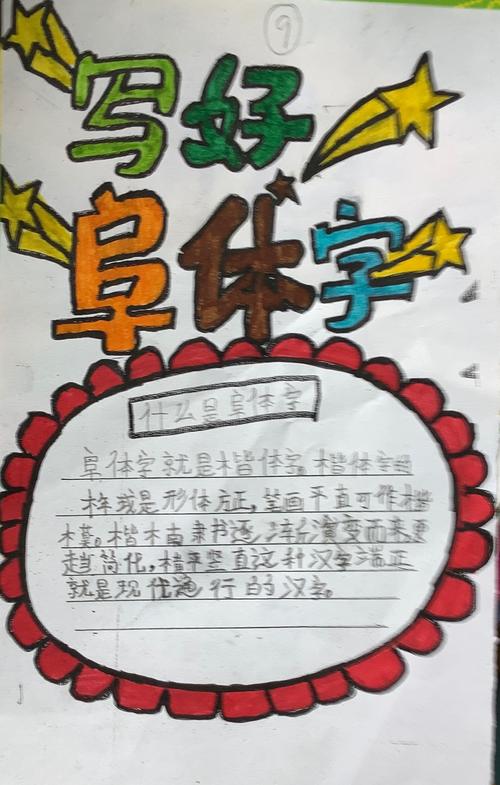 9
写好
阜体字
什么是阜体字
阜体字就是楷体字。楷体字
是形体方正,笔画平直可作楷
楷木由隶书逐渐演变而来更
趋简化,横平竖直这种汉字端正
就是现代通行的汉字。